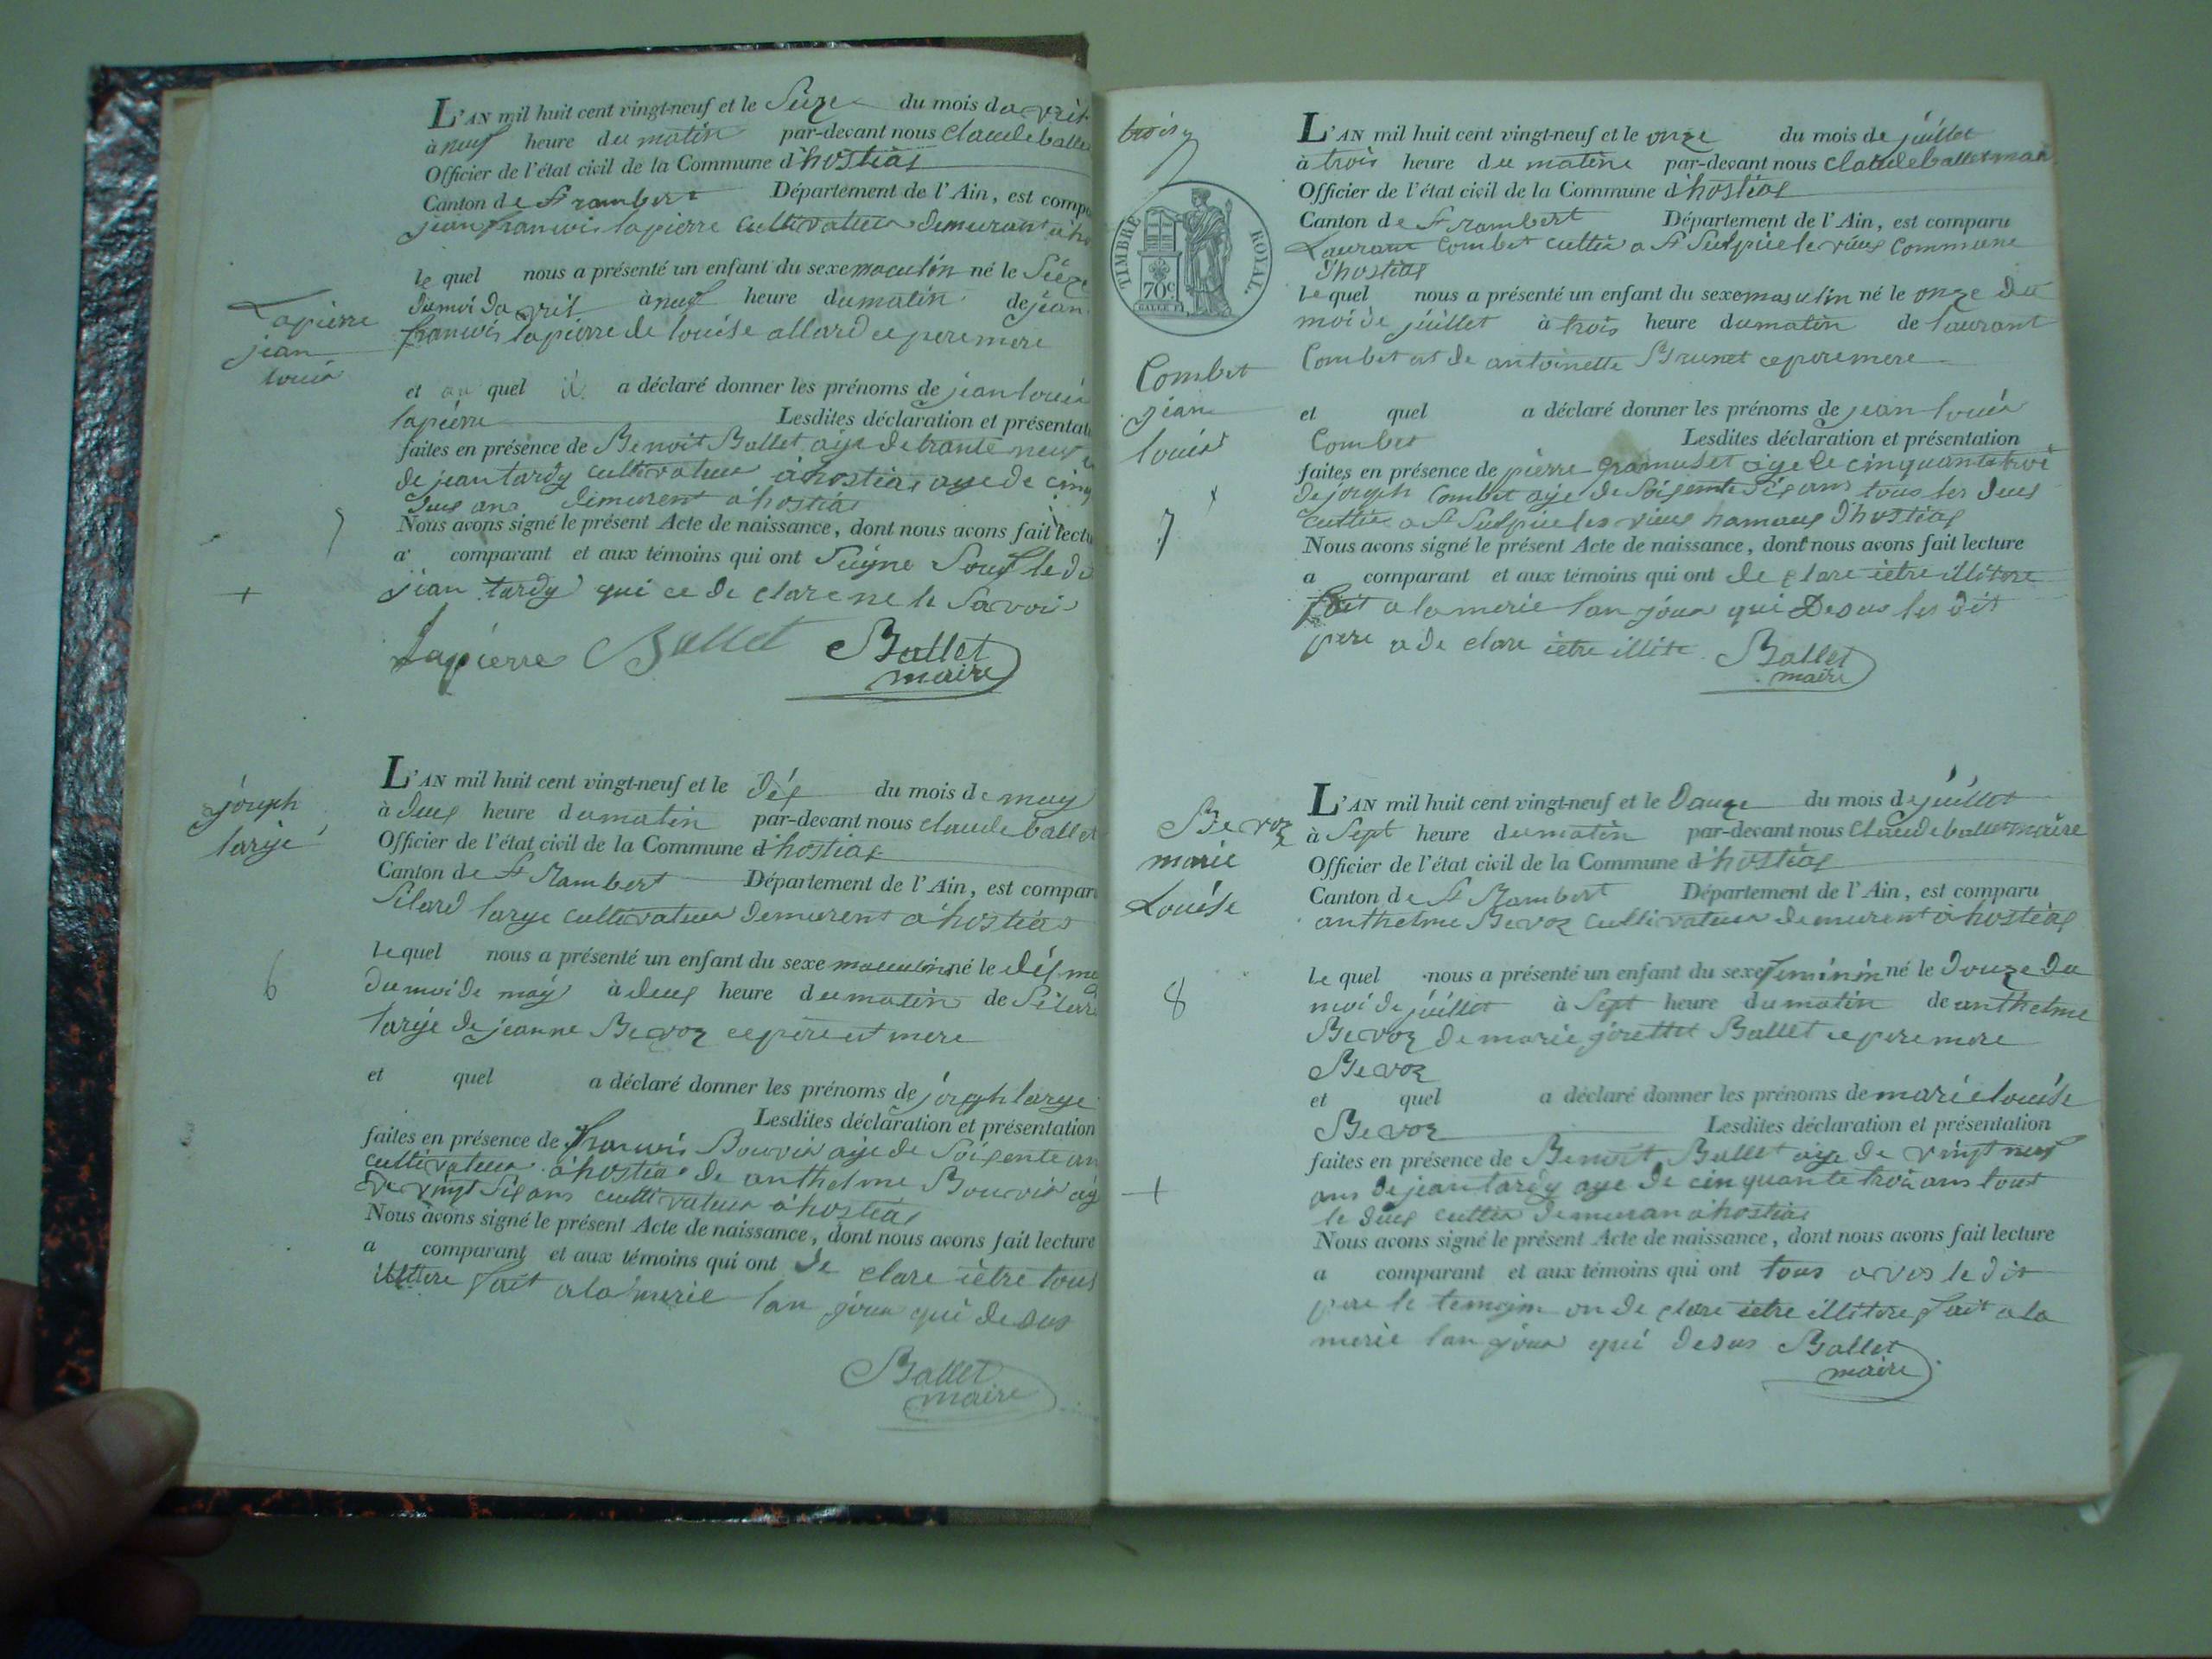 L'AN mil huit cent vingt-neuf et le Seize du mois davril
à neuf heure du matin par-devant nous claude ballet
Officier de l'état civil de la Commune d'hostias
Canton de St rambert Département de l'Ain, est comp
jean francois lapierre cultivateur demurant a ho
le quel nous a présenté un enfant du sexe maculin né le Sèèze
du moi davril à neuf heure du matin de jean
francois lapierre de louise allard ce pere mere
et au quel il a déclaré donner les prénoms de jean louis
lapierre Lesdites déclaration et présentati
faites en présence de Benoit Ballet age de trante neuf
de jean tardy cultivateur à hostias age de cinq
deus ans demurent à hostias
Nous avons signé le présent Acte de naissance, dont nous avons fait lectu
a comparant et aux témoins qui ont Seigne Souf le di
jean tardy qui ce de clare ne le Savoir
Lapierre Ballet Ballet
maire
Lapierre
jean
louis
+
L'AN mil huit cent vingt-neuf et le dés du mois de may
à deus heure du matin par-devant nous claude ballet
Officier de l'état civil de la Commune d'hostias
Canton de St Rambert Département de l'Ain, est compar
Silard large cultivateur demurent à hostias
le quel nous a présenté un enfant du sexe masculin né le dés
du moi de may à deus heure du matin de Silard
large de jeanne Bevoz ce pere et mere
et quel a déclaré donner les prénoms de joseph large
Lesdites déclaration et présentation
faites en présence de francois Bouvier age de Soisente an
cultivateur à hostias de anthelme Bouvier ag
de vingt Sis ans cultivateur à hostias
Nous avons signé le présent Acte de naissance, dont nous avons fait lecture
a comparant et aux témoins qui ont de clare ietre tous
illitere fait a la merie lan jour qui desus
Ballet
maire
joseph
large
6
L'AN mil huit cent vingt-neuf et le onze du mois de juillet
à trois heure du matine par-devant nous claude ballet mair
Officier de l'état civil de la Commune d'hostias
Canton de St rambert Département de l'Ain, est comparu
Laurant Combet cultiv a St Sulpice le vieus Commune
d'hostias
le quel nous a présenté un enfant du sexe masulin né le onze du
moi de juillet à trois heure du matin de laurant
Combet et de antoinette Brunet ce pere mere
et quel a déclaré donner les prénoms de jean louis
Combet Lesdites déclaration et présentation
faites en présence de pierre gramuset age de cinquante troi
de joseph Combet age de Soisente Sis ans tous les deus
cultiv a St Sulpice les vieus hamaus d'hostias
Nous avons signé le présent Acte de naissance, dont nous avons fait lecture
a comparant et aux témoins qui ont de clare ietre illitere
fait a la merie lan jour qui Desus les dit
pere a de clare ietre illite Ballet
maire
TIMBRE ROYAL.
70c
Combet
jean
louis
7
L'AN mil huit cent vingt-neuf et le Dauze du mois de juillet
à Sept heure du matin par-devant nous Claude ballet maire
Officier de l'état civil de la Commune d'hostias
Canton de St Rambert Département de l'Ain, est comparu
anthelme Bevoz cultivateur demeurent à hostias
le quel nous a présenté un enfant du sexe feminin né le douze du
moi de juillet à Sept heure du matin de anthelme
Bevoz de marie josette Ballet ce pere mere
Bevoz
et quel a déclaré donner les prénoms de marie louise
Bevoz Lesdites déclaration et présentation
faites en présence de Benoit Ballet age de vingt neuf
ans de jean tardy age de cinquante trois ans tout
le deus cultiv demeuran a hostias
Nous avons signé le présent Acte de naissance, dont nous avons fait lecture
a comparant et aux témoins qui ont tous aves le dit
pere le temojn on de clare ietre illitere fait a la
merie lan jour qui desus Ballet
maire
Bevoz
marie
Louise
8
+